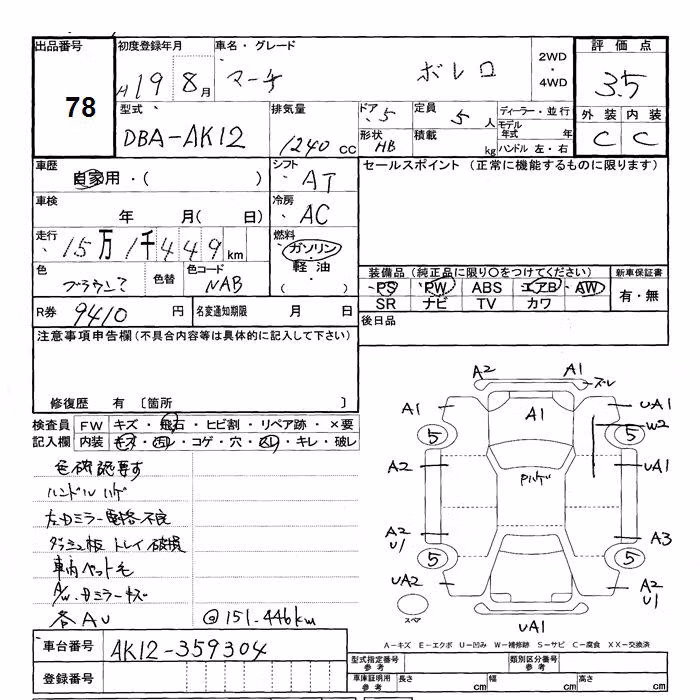 出品番号 初度登録年月 車名・グレード 2WD・4WD 評価点
78 H19 8月 マーチ ボレロ 3.5
型式 排気量 ドア 5 定員 5人 ディーラー・並行 外装 内装
DBA-AK12 1240cc 形状 HB 積載 kg モデル年式 年 C C
ハンドル 左・右
車歴 シフト セールスポイント (正常に機能するものに限ります)
自家用・( ) AT
車検 冷房
年 月( 日) AC
走行 15万1千449km 燃料
ガソリン・軽油・( )
色 色替 色コード
ブラウン NAB
装備品 (純正品に限り○をつけてください) 新車保証書
PS PW ABS エアB AW 有・無
SR ナビ TV カワ
R券 9410円 名変通知期限 月 日 後日品
注意事項申告欄 (不具合内容等は具体的に記入して下さい)
修復歴 有 〔箇所 〕
検査員 FW キズ・飛石・ヒビ割・リペア跡・×要
記入欄 内装 キズ・汚レ・コゲ・穴・スレ・キレ・破レ
色確認要す
ハンドル ハゲ
左Dミラー電格不良
ダッシュ板 トレイ破損
車内ペット毛
A/W、Dミラーキズ
各AU @151.446km
A2 A1 ズレ
A1 A1 UA1
5 5 W2
A2 Pハゲ UA1
A2 U1 A3
5 5
UA2 A2 U1
スペア UA1
A-キズ E-エクボ U-凹み W-補修跡 S-サビ C-腐食 XX-交換済
車台番号 AK12-359304
型式指定番号 参考 類別区分番号 参考
登録番号 車庫証明用 参考 長さ cm 幅 cm 高さ cm